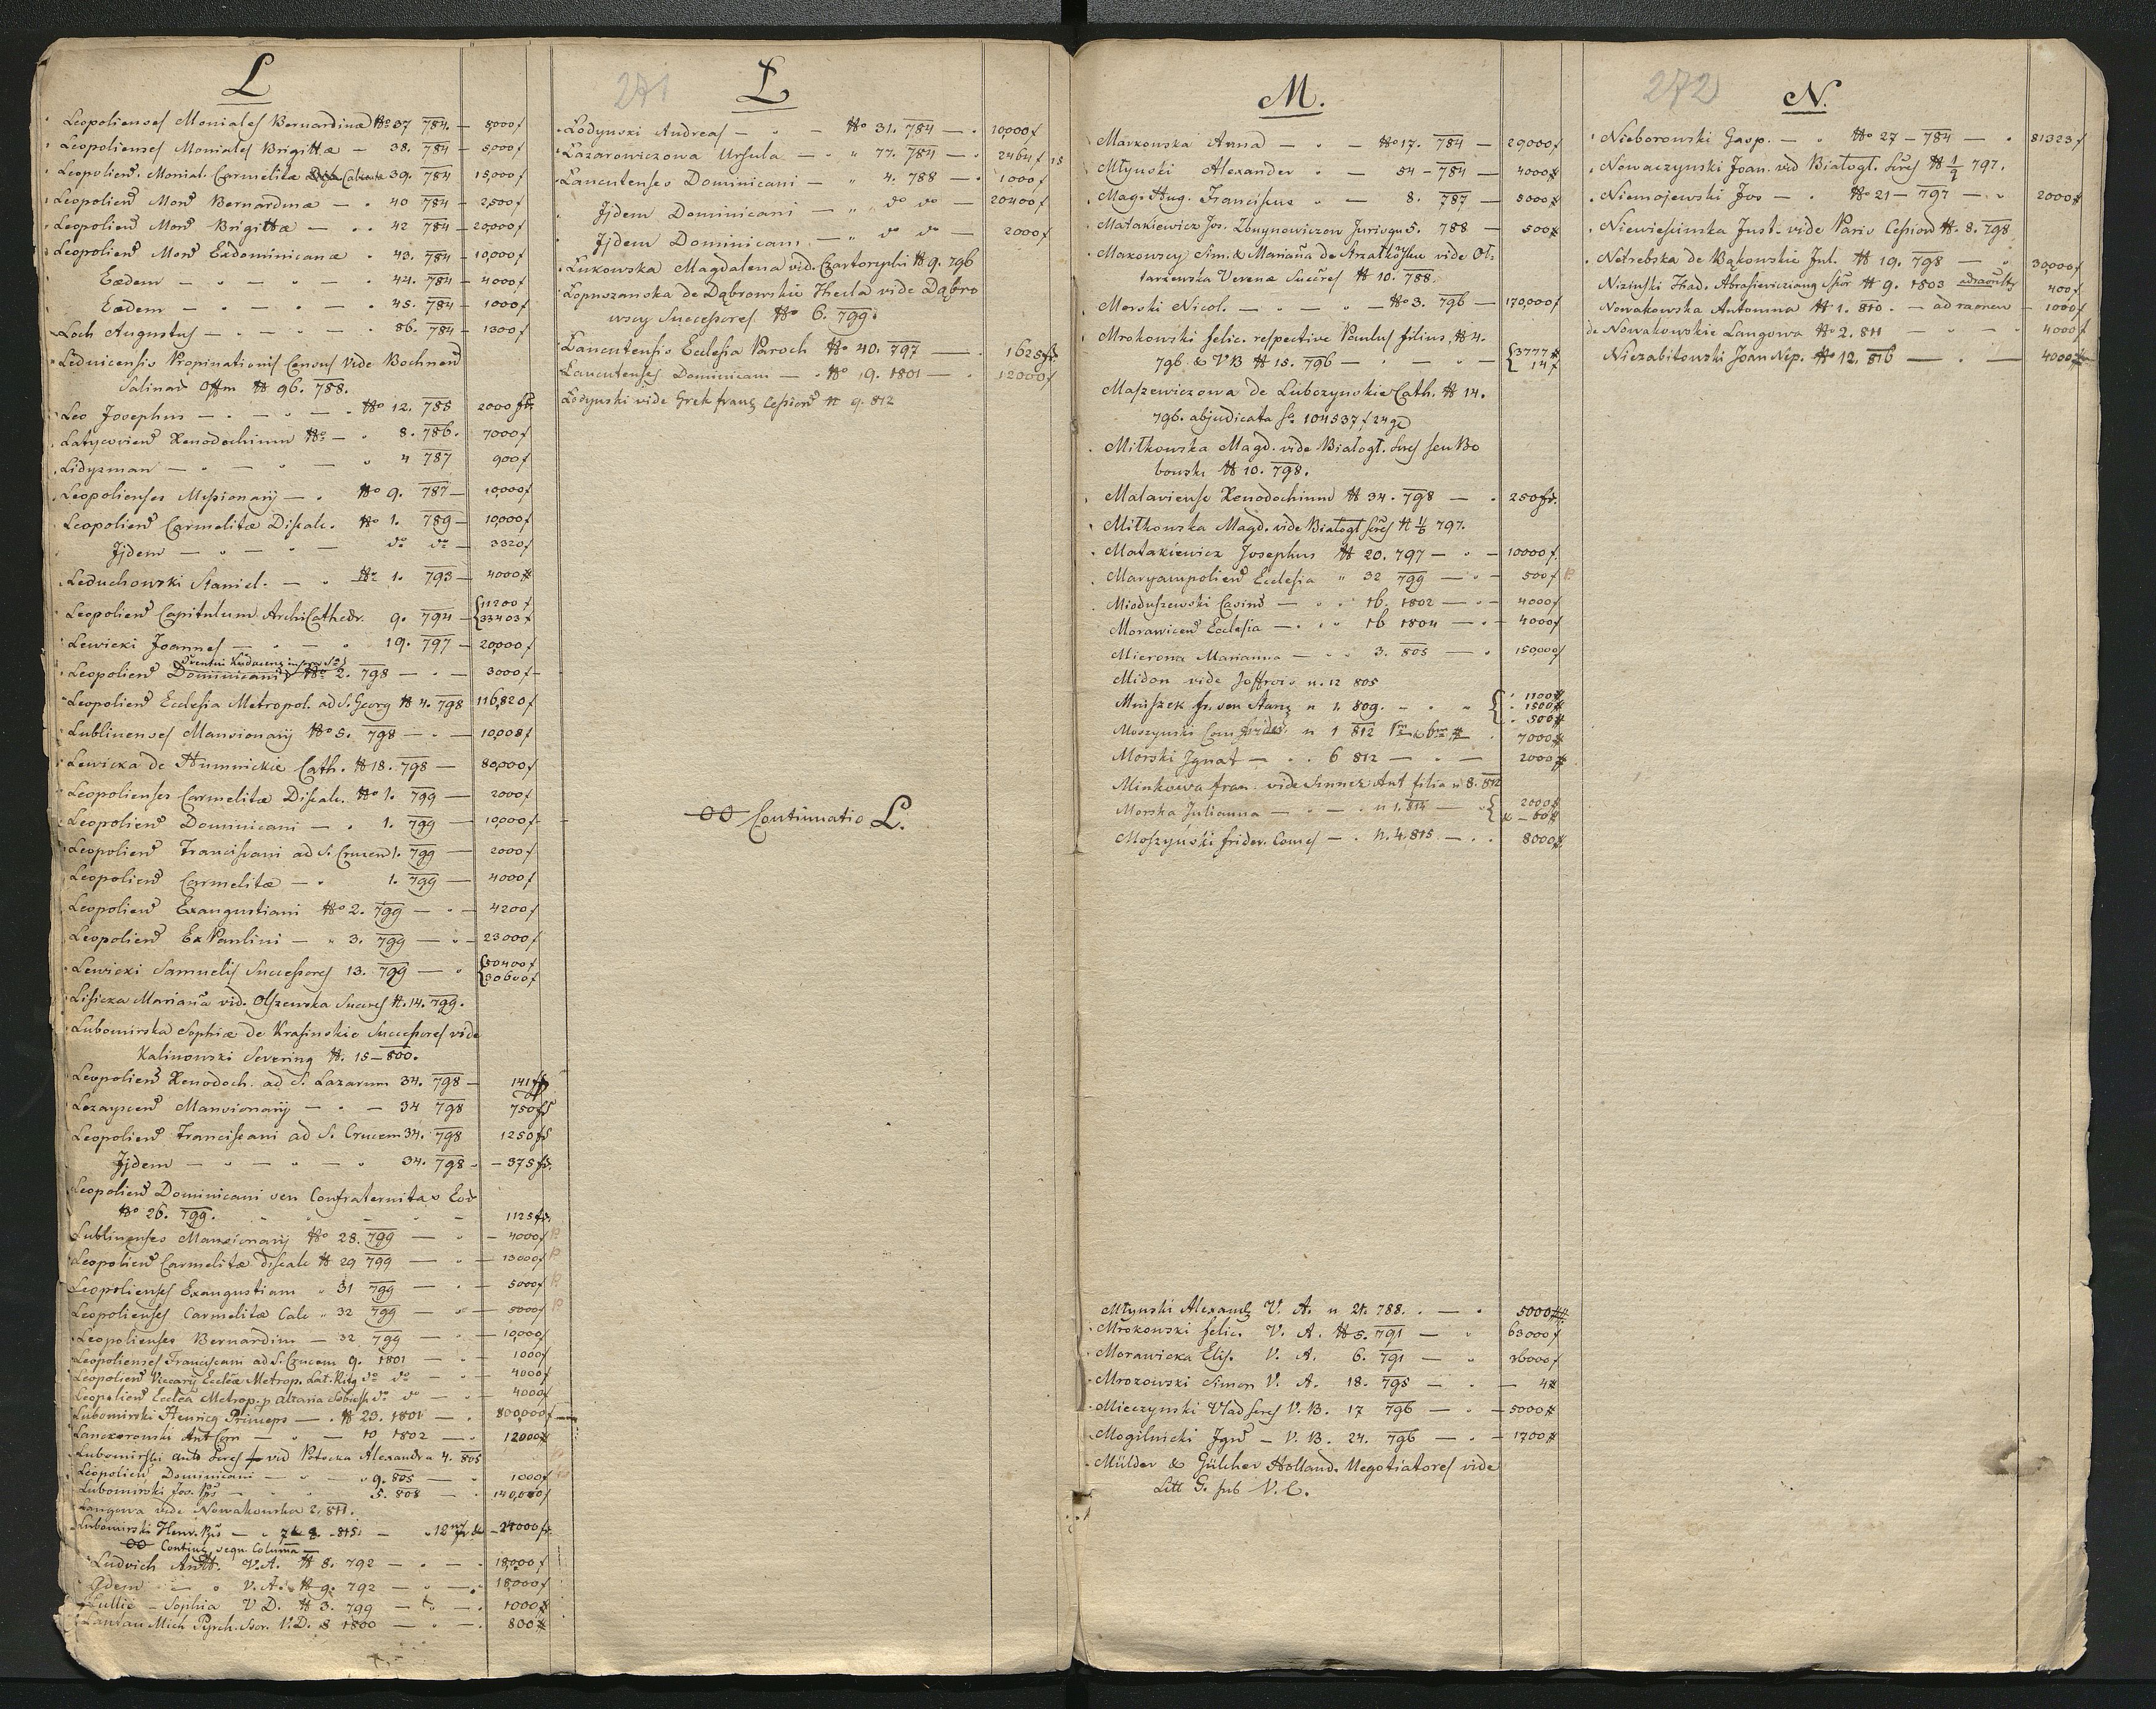 L
Leopolienses Moniales Bernardinae No 37 784. — 8000 f
Leopolienses Moniales Brigittae — 38. 784 — 5,000 f
Leopoliens. Monial. Carmelitae 39. 784 15,000 f
Leopoliens Mons Bernardinae — 40 784 — 2,500 f
Leopoliens Mons Brigittae — 42 784 — 20,000 f
Leopoliens Mons Exdominicanae 43. 784 — 10,000 f
Eaedem — 44. 784 — 4000 f
Eaedem — 45. 784 — 1000 f
Loch Augustus — 86. 784 — 1300 f
Lednicensis Propinationis Census vide Bochnens
Salinar Offm # 96. 788.
Leo Josephus — No 12. 785 2000 fr.
Latycoviens Xenodochium No — 8. 786. 7000 f
Lidyzman — 4 787 900 f
Leopolienses Missionarij — No 9. 787 — 10,000 f
Leopoliens Carmelitae Discalc. No 1. 789 — 10,000 f
Jjdem — do do — 3320 f
Leduchowski Staniel. — No 1. 793 — 4000 #
Leopoliens Capitulum ArchiCathedr. 9. 794 — {11200 f
{33403 f
Lewicki Joannes — 19. 797 — 20,000 f
Leopoliens Dominicani No 2. 798 — 3000 f
Leopoliens Ecclesia Metropol. ad S. Georg # 4. 798 116,820 f
Lublinenses Mansionarij No 5. 798 — 10,008 f
Lewicka de Humnickie Cath. # 18. 798 — 80,000 f
Leopolienses Carmelitae Discalc. No 1. 799 — 2000 f
Leopoliens Dominicani — 1. 799 — 10,000 f
Leopoliens Franciscani ad S. Crucem 1. 799 — 2000 f
Leopoliens Carmelitae — 1. 799 — 4000 f
Leopoliens Exaugustiani No 2. 799 — 4200 f
Leopoliens ExPaulini — 3. 799 — 23000 f
Lewicki Samuelis Successores 13. 799 — {50400 f
{30600 f
Lisicka Marianna vid. Olszewska Succres #. 14. 799.
Lubomirska Sophiae de Krasinskie Successores vide
Kalinowski Severing #. 15 — 800.
Leopoliens Xenodoch. ad S. Lazarum 34. 798 — 141 fr
Lezayscens Mansionarij — 34 798 750 fr
Leopoliens Franciscani ad S. Crucem 34. 798 1250 fr
Jjdem — 34. 798 — 375 fr.
Leopoliens Dominicani seu Confraternitas Eor
No 26. 799. 1125 fr.
Lublinenses Mansionarij No 28. 799 — 4000 f
Leopoliens Carmelitae discalc # 29 799 — 13000 f
Leopolienses Exaugustiani 31 799 — 5000 f
Leopolienses Carmelitae Calc 32 799 — 5000 f
Leopolienses Bernardini — 32 799 — 10,000 f
Leopolienses Franciscani ad S. Crucem 9. 1801 — 1000 f
Leopoliens Viccarij Eccleae Metrop. Lat. Ritq do do — 4000 f
Leopoliens Ecclea Metrop. p altaria Sobiesk do do — 4000 f
Lubomirski Henricq Princeps — # 23. 1801 — 800,000 f
Lanckoronski Ant Com — 10 1802 — 12000 #
Lubomirski Anto Sres vid Potocka Alexandra 4. 805
Leopoliens Dominicani — 9. 805 — 1000 f
Lubomirski Jos. Pps — 5. 808 — 140,000 f
Langowa vide Nowakowska 2. 811.
Lubomirski Henr. Pps — 8. 815 — 24000 fr.
OO Continq sequ. Columna —
Ludvich Antt. V. A. # 8. 792 — 18,000 f
Idem — V. A. # 9. 792 — 18,000 f
Lullie — Sophia V D. # 3. 799 — 1000 #
Landau Mich Pyrch. Sor. V. D. 8 1800 — 800 #
271
Ł
Łodynski Andreas — No 31. 784 — 10,000 f
Łazarowiczowa Ursula — 77. 784 — 2464 f 15
Łancutenses Dominicani — 4. 788 — 1000 f
Jjdem Dominicani — do do — 20400 f
Jjdem Dominicani — do do — 2000 f
Łukowska Magdalena vid. Czartoryski # 9. 796
Łopuszanska de Dąbrowskie Thecla vide Dąbro
wscy Successores No 6. 799.
Łancutensis Ecclesia Paroch No 40. 797 — 1625 fr.
Łancutenses Dominicani — No 19. 1801 — 12000 f
Łodynski vide Grek franz Cessions # 9. 812
OO Continuatio L.
M.
Markowska Anna — No 17. 784 — 29,000 f
Młynski Alexander — 54 — 784 — 4000 #
Mag. Aug. Franciscus — 8. 787 — 8000 #
Matakiewicz Jos. Zbuynowiczow Juriogu 5. 788 — 500 #
Makowscy Sim. & Marianna de Strzałkoskie vide Oł
tarzewska Verenae Succres # 10. 788.
Morski Nicol. — No 3. 796 — 170,000 f
Mrokowski felic. respective Paulus filius, # 4.
796. & VB # 15. 796 — {3777 #
{14 f
Maszewiczowa de Lubczynskie Cath. # 14.
796. abjudicata Sa 104537 f 24 g
Miłkowska Magd. vide Białogł. Sres seu Bo
bowsk # 10. 798.
Mataviense Xenodochium # 34. 798 — 250 fr.
Miłkowska Magd. vide Białogł Sres # 797.
Matakiewicz Josephus # 20. 797 — 10000 f
Maryampoliens Ecclesia 32 799 — 500 f
Mioduszewski Casins — 16. 1802 — 4000 f
Morawicens Ecclesia — 16 1804 — 4000 f
Mierona Marianna — 3. 805 — 150,000 f
Midon vide Joffroi n. 12 805
Mniszek fr. sen Stanz n 1. 809. — {1100 #
{1500 #
{500 #
Moszynski Com frider. n 1 812 7000 #
Morski Jgnat — 6 812 — 2000 #
Minkowa fran. vide Sinnez Ant filia n 8. 812
Morska Julianna — n 1. 814 — {2000 #
{60 #
Moszyński frider. Comes — n. 4. 815 — 8000 #
Młynski Alexandz V. A. n 21. 788. — 5000 ##
Mrokowski felic. V. A. # 5. 791 — 63000 f
Morawicka Elis. V. A. 6. 791 — 36000 f
Mrozowski Simon V. A. 18. 795 — 4 #
Mieczynski Vlad Sres V. B. 17 796 — 5000 #
Mogilnicki Jgns — V. B. 24. 796 — 1700 #
Mülder & Gülcher Holland. Negotiatores vide
Litt G. sub V. C.
272
N.
Nieborowski Gasp. — No 27 — 784 — 81323 f
Nowaczynski Joan. vid Białogł. Sres # 1/2 797.
Niemojewski Jos — No 21 — 797 — 2000 #
Niewiescinska Just. vide Paris Cession #. 8. 798
Netrebska de Bąkowskie Jul. # 19. 798 — 30,000 f
Nizinski Thad. Abrasiewicziang # 9. 1803 400 f
Nowakowska Antonina # 1. 810. — ad ramen — 1000 f
de Nowakowskie Langowa No 2. 811 — 4000 f
Niezabitowski Joan Nep. No 12. 816 — 4000 #